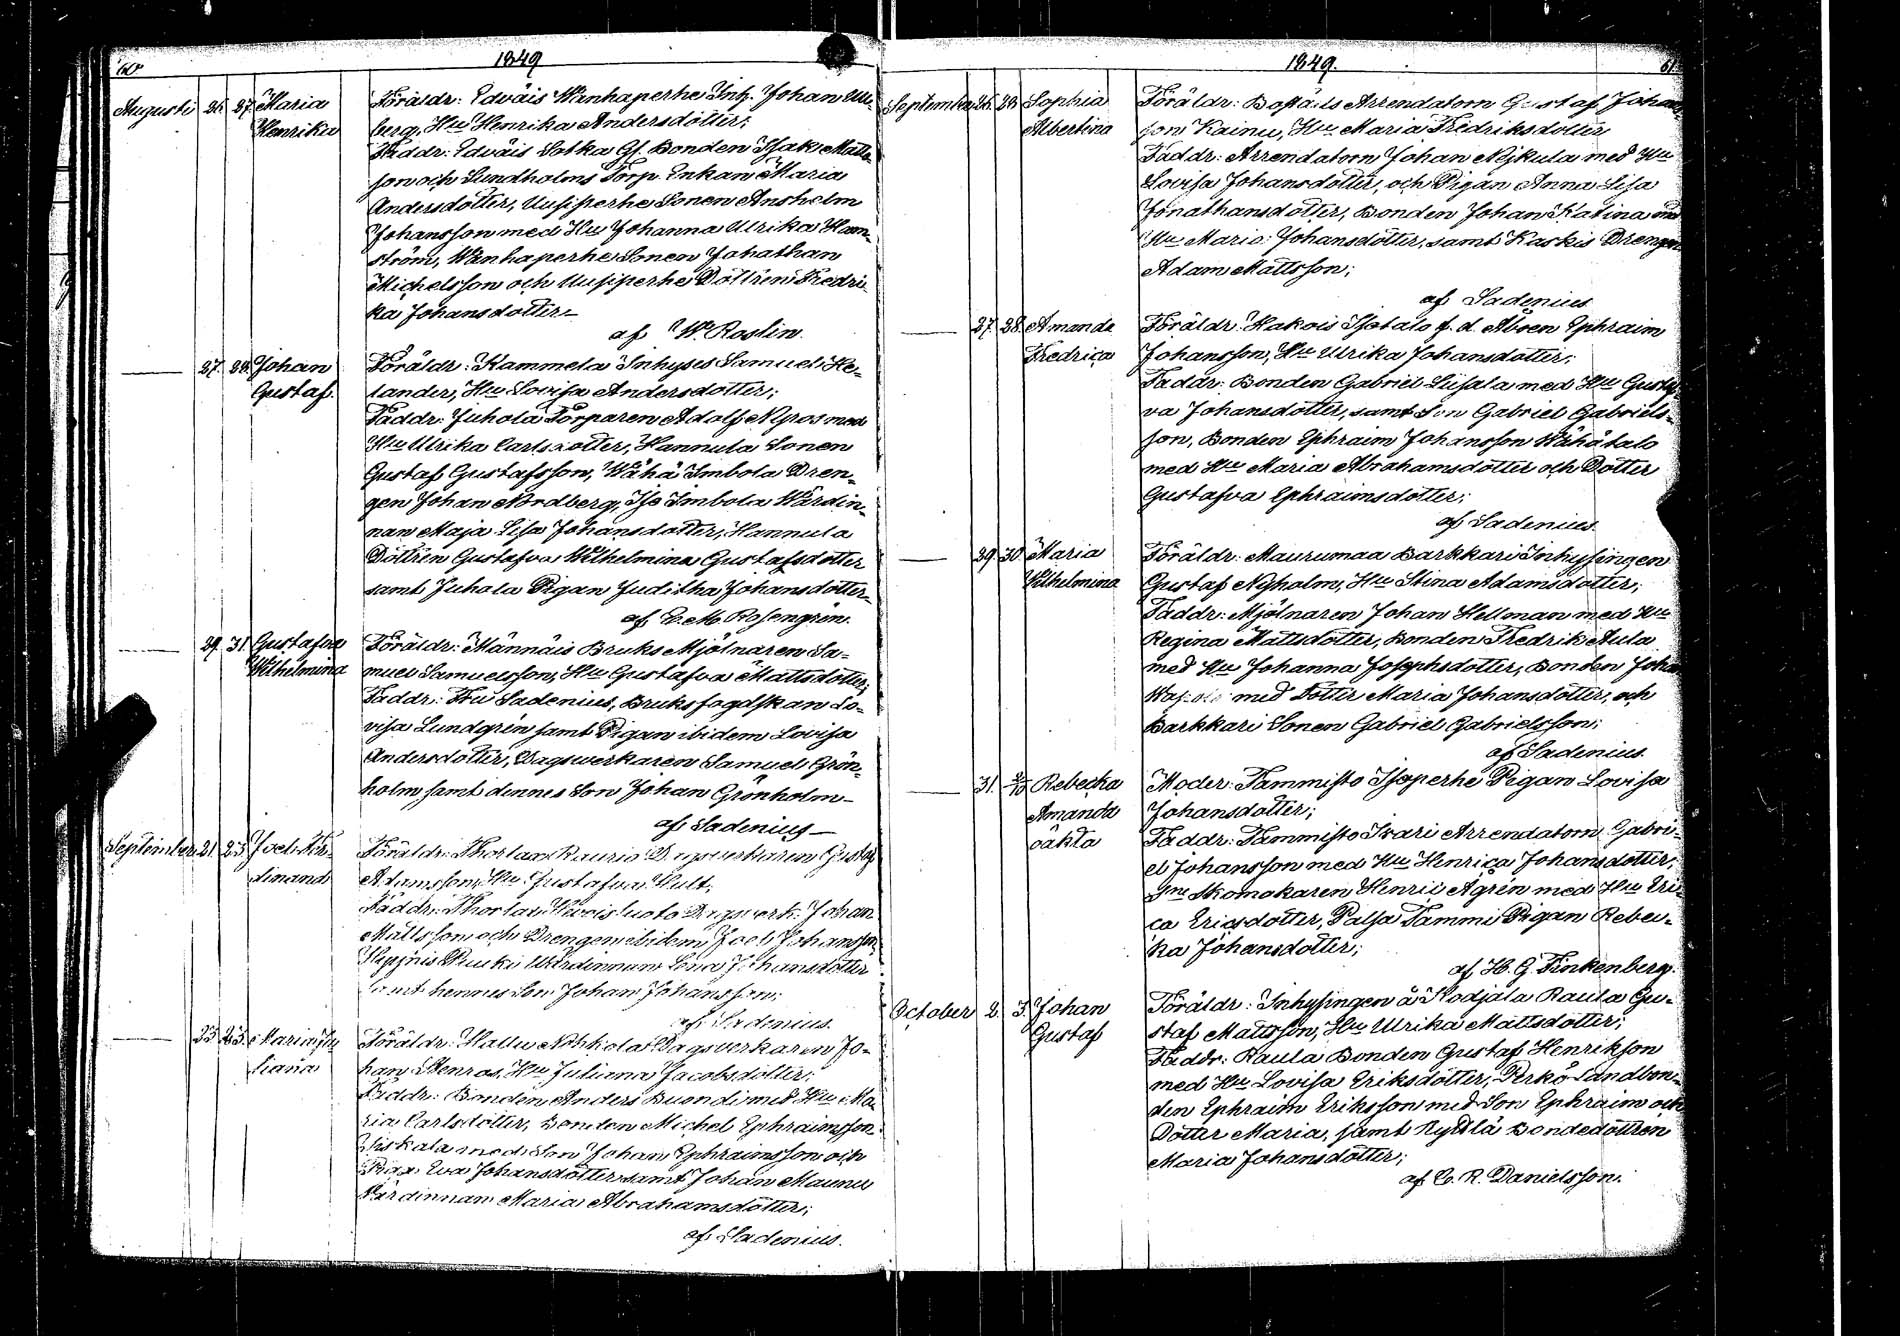 60 1849
Augusti 26. 27. Maria Föräldr: Edväis Wanhaperhe Inh. Johan Ull-
Henrika berg, Hu Henrika Andersdotter;
Faddr: Edväis Sotka Gl. Bonden Isak Matts-
son och Sundholms Torp Enkan Maria
Andersdotter, Uusiperhe Sonen Anshelm
Johansson med Hu Johanna Ulrika Ham-
ström, Wanhaperhe Sonen Johathan
Michelsson och Uusiperhe Dottren Fredri-
ka Johansdotter.
af W. Roslin.
27. 28. Johan Föräldr: Kammela Inhyses Samuel He-
Gustaf. lander, Hu Lovisa Andersdotter;
Faddr: Juhola Torparen Adolf Nyros med
Hu Ulrika Carlsdotter, Hannula Sonen
Gustaf Gustafsson, Wähä Imbola Dren-
gen Johan Nordberg, Iso Imbola Wärdin-
nan Maja Lisa Johansdotter, Hannula
Dottren Gustafva Wilhelmina Gustafsdotter
samt Juhola Pigan Juditha Johansdotter
af C. M. Rosengrén.
29. 31. Gustafva Föräldr: Männäis Bruks Mjölnaren Sa-
Wilhelmina muel Samuelsson, Hu Gustafva Mattsdotter;
Faddr: Fru Sadenius, Bruksfogdskan Lo-
visa Lundgrén samt Pigan ibidem Lovisa
Andersdotter, Dagsverkaren Samuel Grön-
holm samt dennes Son Johan Grönholm
af Sadenius
September 21. 23. Joel Fer- Föräldr: Thorlax Raurio Dagsverkaren Gustaf
dinand Adamsson, Hu Gustafva Hult;
Faddr: Thorlax luoto Dagsverk. Johan
Mattsson och Drengen ibidem Joel Johansson,
Ruuki Wärdinnan Lena Johansdotter
samt hennes Son Johan Johansson;
af Sadenius.
23. 23. Maria Ju- Föräldr: Kallu Dagsverkaren Jo-
liana han Stenros, Hu Juliana Jacobsdotter;
Faddr: Bonden Anders Buendi med Hu Ma-
ria Carlsdotter, Bonden Michel Ephraimsson
med Son Johan Ephraimsson och
Piga Eva Johansdotter samt Johan Maunu
Wärdinnan Maria Abrahamsdotter;
af Sadenius.
1849. 61.
September 26. 28. Sophia Föräldr: Boställs Arrendatorn Gustaf Johans-
Albertina son Kainu, Hu Maria Fredriksdotter
Faddr: Arrendatorn Johan Nykula med Hu
Lovisa Johansdotter, och Pigan Anna Lisa
Jonathansdotter, Bonden Johan Katina med
Hu Maria Johansdotter, samt Kaskis Drengen
Adam Mattsson;
af Sadenius
27. 28. Amanda Föräldr: Kakois Isotalo f. d. Åboen Ephraim
Fredrica Johansson, Hu Ulrika Johansdotter;
Faddr: Bonden Gabriel Liisala med Hu Gustaf-
va Johansdotter, samt Son Gabriel Gabriels-
son, Bonden Ephraim Johansson Wähätalo
med Hu Maria Abrahamsdotter och Dotter
Gustafva Ephraimsdotter;
af Sadenius.
29. 30. Maria Föräldr: Maurumaa Barkkari Inhysingen
Wilhelmina Gustaf Nyholm, Hu Stina Adamsdotter;
Faddr: Mjölnaren Johan Hellman med Hu
Regina Mattsdotter, Bonden Fredrik Aula
med Hu Johanna Josephsdotter, Bonden Johan
med Dotter Maria Johansdotter, och
Barkkari Sonen Gabriel Gabrielsson;
af Sadenius
31. 2/10 Rebecka Moder: Tammisto Isoperhe Pigan Lovisa
Amanda Johansdotter;
oäkta Faddr: Tammisto Ivari Arrendatorn Gabri-
el Johansson med Hu Henrica Johansdotter,
Sne Skomakaren Henric Agrén med Hu Eri-
ca Ericsdotter, Palsa Tammi Pigan Rebec-
ka Johansdotter;
af H. G. Finkenberg.
October 2. 3. Johan Föräldr: Inhysingen å Kodjala Raula Gu-
Gustaf staf Mattsson, Hu Ulrika Mattsdotter;
Faddr: Raula Bonden Gustaf Henrikson
med Hu Lovisa Eriksdotter, Perkö Landbon-
den Ephraim Eriksson med Son Ephraim och
Dotter Maria, samt Kydlä Bondedottren
Maria Johansdotter;
af C. R. Danielsson.